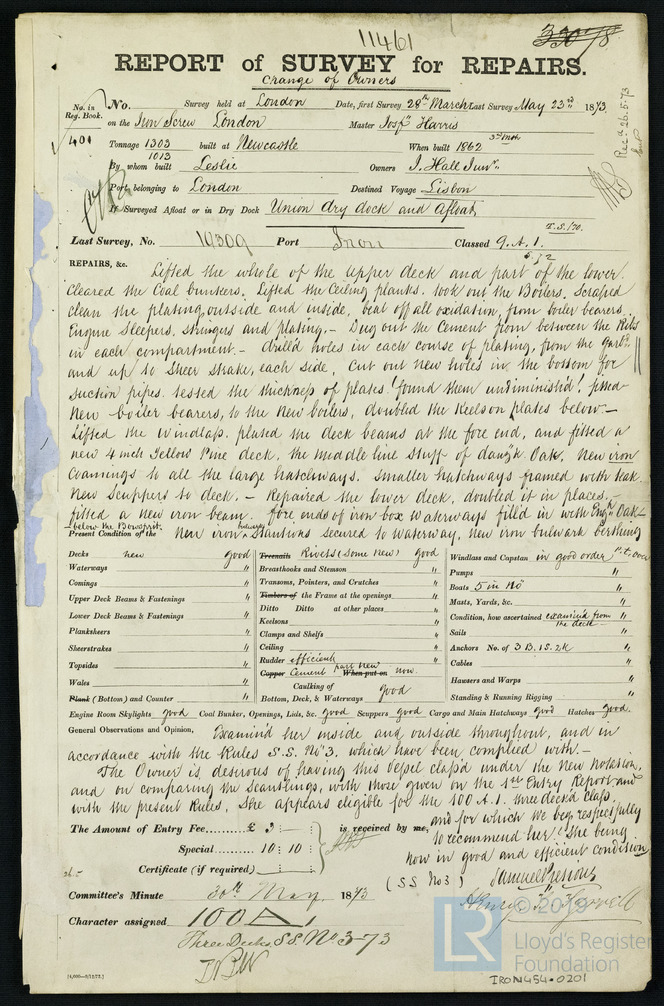 11461
REPORT of SURVEY for REPAIRS.
Change of Owners
No. in Reg. Book.
No. Survey held at London Date, first Survey 28th March Last Survey May 23rd 1873
401 on the Iron Screw London Master Josh Harris
Tonnage 1303 built at Newcastle When built 1862 3rd Mth
1013
By whom built Leslie Owners J. Hall Junr.
Port belonging to London Destined Voyage Lisbon
If Surveyed Afloat or in Dry Dock Union dry dock and Afloat
Recd 26.5.73
T.S./70.
Last Survey, No. 19309 Port Iron Classed 9.A.1.
5,72
REPAIRS, &c. Lifted the whole of the upper deck and part of the lower.
Cleared the Coal bunkers. Lifted the Ceiling planks. took out the Boilers. Scraped
clean the plating outside and inside, beat off all oxidation, from boiler bearers.
Engine Sleepers, stringers and plating. – Dug out the Cement from between the Ribs
in each compartment. – drill'd holes in each course of plating, from the garbd.
and up to sheer strake, each side, Cut out new holes in the bottom for
suction pipes. tested the thickness of plates (found them undiminish'd), fitted
new boiler bearers, to the new boilers, doubled the Keelson plates below. –
Lifted the Windlass. plated the deck beams at the fore end, and fitted a
new 4 inch Yellow Pine deck. the middle line stuff of dantzk Oak. New iron
Coamings to all the large hatchways. Smaller hatchways framed with teak
New Scuppers to deck. – Repaired the lower deck, doubled it in places, –
fitted a new iron beam. fore ends of iron box Waterways fill'd in with Engh Oak –
below the Bowsprit.
Present Condition of the New iron bulwark Stantions secured to Waterway, new iron bulwark berthing
Decks new good
Waterways "
Comings "
Upper Deck Beams & Fastenings "
Lower Deck Beams & Fastenings "
Planksheers "
Sheerstrakes "
Topsides "
Wales "
Plank (Bottom) and Counter "
Treenails Rivets (Some New) good
Breasthooks and Stemson "
Transoms, Pointers, and Crutches "
Timbers of the Frame at the openings "
Ditto Ditto at other places "
Keelsons "
Clamps and Shelfs "
Ceiling "
Rudder efficient "
Copper Cement part new When put on now.
Caulking of
Bottom, Deck, & Waterways good
Windlass and Capstan in good order
Pumps "
Boats 5 in No "
Masts, Yards, &c. "
Condition, how ascertained examin'd from the deck –
Sails "
Anchors No. of 3 B. 1S. 2K "
Cables "
Hawsers and Warps "
Standing & Running Rigging "
Engine Room Skylights good Coal Bunker, Openings, Lids, &c. good Scuppers good Cargo and Main Hatchways good Hatches good.
General Observations and Opinion, Examin'd her inside and outside throughout, and in
accordance with the Rules S.S. No 3. which have been complied with. –
The Owner is desirous of having this Vessel class'd under the new notation,
and on comparing the Scantlings, with those given on the 1st Entry Report and
with the present Rules, She appears eligible for the 100 A.1. three deck'd class.
and for which we beg respectfully
to recommend her. She being
now in good and efficient condition
The Amount of Entry Fee £ 3 : – : is received by me,
Special 10 : 10 :
Certificate (if required) : :
(SS No 3)
26.5
Committee's Minute 30th May 1873
Character assigned 100 A 1
Three Decks, S.S. No 3-73
[4,000–9/12/72.]
LR
© 2019
Lloyd's Register
Foundation
IRON454-0201